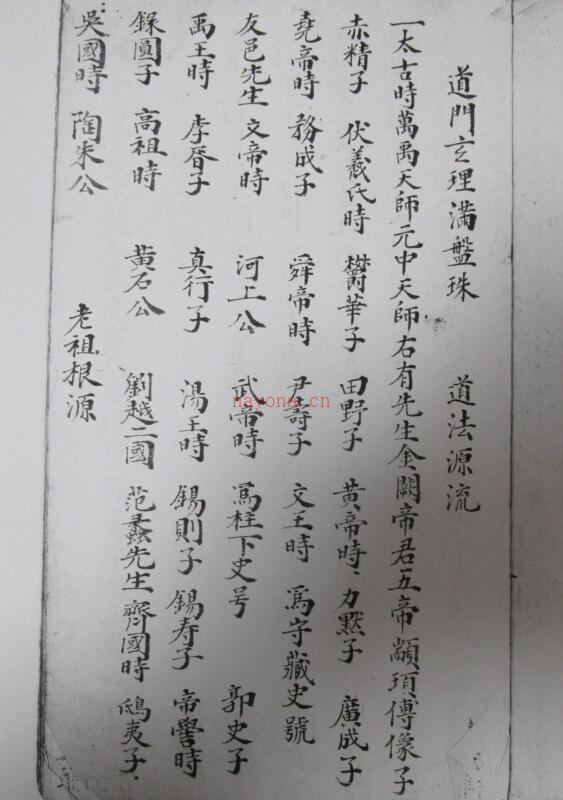 道門玄理滿盤珠 道法源流
一太古時萬禹天師元中天師右有先生金闕帝君五帝顓頊傅像子
赤精子 伏羲氏時 欝華子 田野子 黃帝時、力黙子 廣成子
堯帝時 務成子 舜帝時 尹壽子 文王時 為守藏史號
友邑先生 文帝時 河上公 武帝時 為柱下史号 郭史子
禹王時 李胥子 真行子 湯王時 錫則子 錫寿子 帝嚳時
錄圓子 高祖時 黃石公 劉越二國 范蠡先生 齊國時 鴟夷子
吳國時 陶朱公 老祖根源
nayona.cn